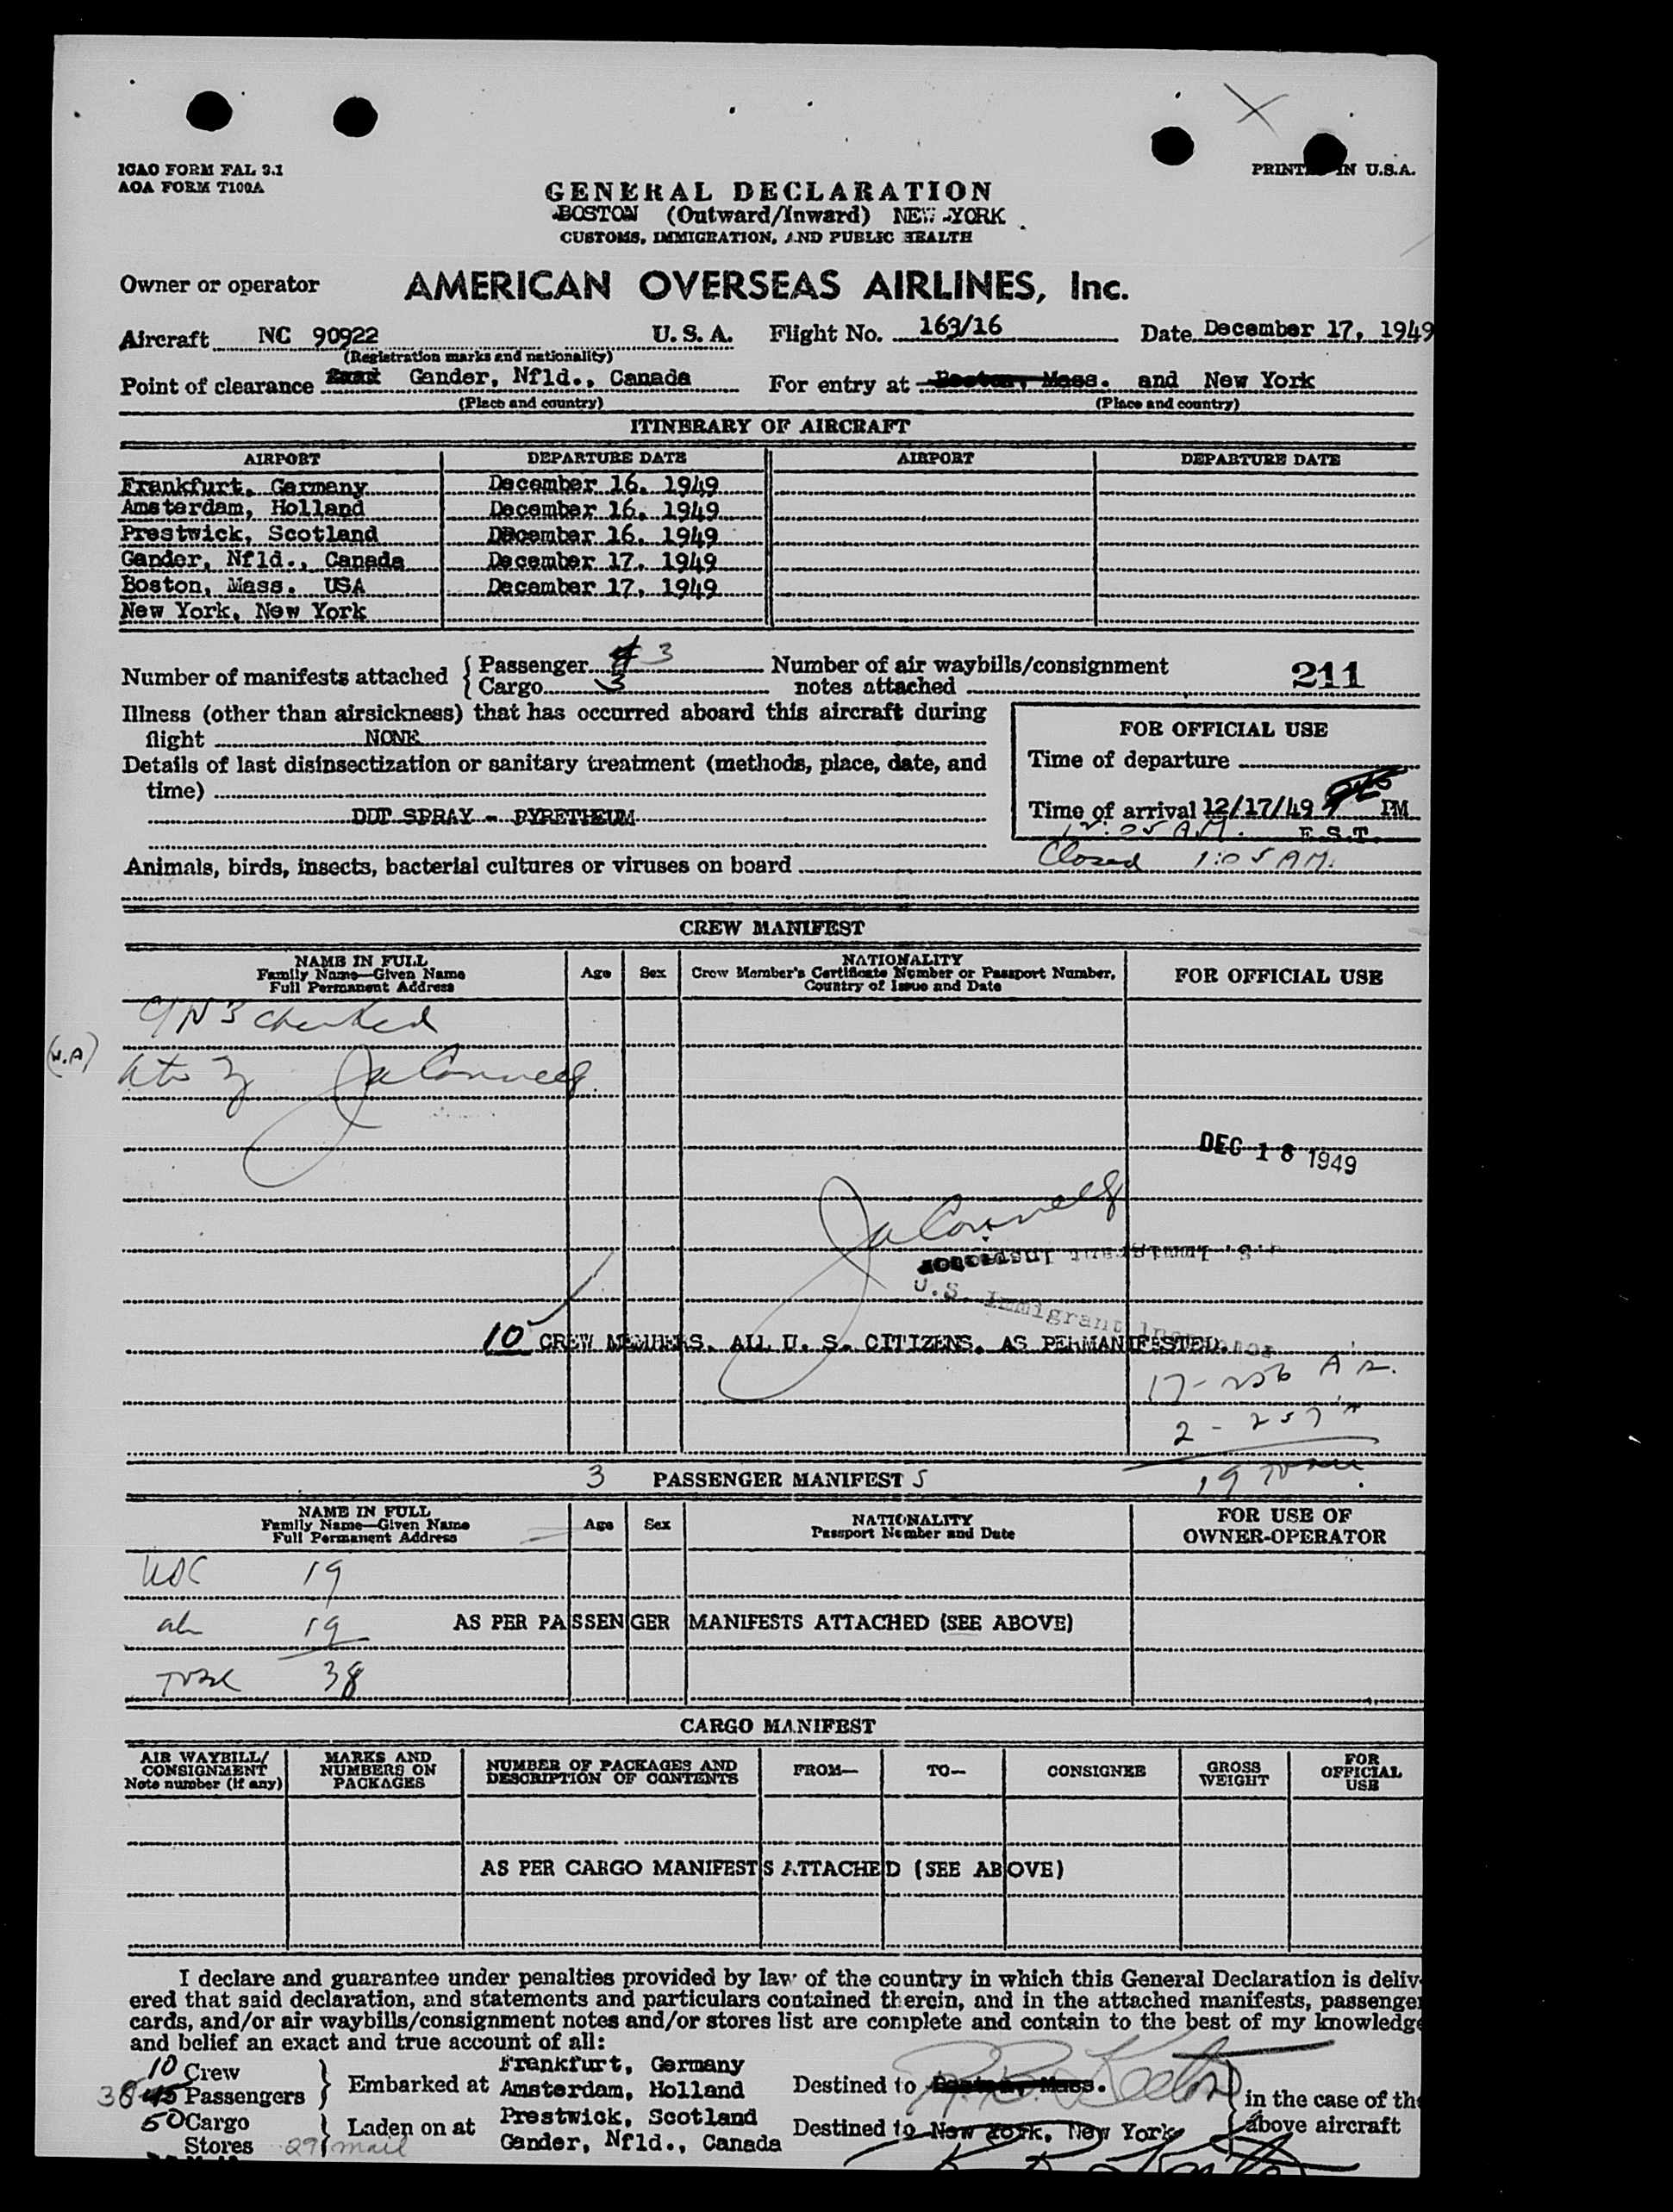 ICAO FORM FAL 3.1
AOA FORM T100A
PRINTED IN U.S.A.
GENERAL DECLARATION
BOSTON (Outward/Inward) NEW YORK
CUSTOMS, IMMIGRATION, AND PUBLIC HEALTH
Owner or operator AMERICAN OVERSEAS AIRLINES, Inc.
Aircraft NC 90922 U. S. A. Flight No. 163/16 Date December 17, 1949
(Registration marks and nationality)
Point of clearance Gander, Nfld., Canada For entry at Boston, Mass. and New York
(Place and country) (Place and country)
ITINERARY OF AIRCRAFT
AIRPORT DEPARTURE DATE AIRPORT DEPARTURE DATE
Frankfurt, Germany December 16, 1949
Amsterdam, Holland December 16, 1949
Prestwick, Scotland December 16, 1949
Gander, Nfld., Canada December 17, 1949
Boston, Mass. USA December 17, 1949
New York, New York
Number of manifests attached { Passenger 3 Number of air waybills/consignment
Cargo 3 notes attached 211
Illness (other than airsickness) that has occurred aboard this aircraft during
flight NONE
Details of last disinsectization or sanitary treatment (methods, place, date, and
time)
DDT SPRAY - PYRETHEUM
FOR OFFICIAL USE
Time of departure
Time of arrival 12/17/49 PM
12:05 A.M. E.S.T.
Closed 1:05 AM.
Animals, birds, insects, bacterial cultures or viruses on board
CREW MANIFEST
NAME IN FULL
Family Name—Given Name
Full Permanent Address
Age Sex
NATIONALITY
Crew Member's Certificate Number or Passport Number,
Country of Issue and Date
FOR OFFICIAL USE
checked
DEC 18 1949
U.S. Immigrant Inspector
U.S. Immigrant Inspector
10 CREW MEMBERS, ALL U. S. CITIZENS, AS PER MANIFESTED.
17-256
2 - 257 "
19 Total
3 PASSENGER MANIFEST S
NAME IN FULL
Family Name—Given Name
Full Permanent Address
Age Sex
NATIONALITY
Passport Number and Date
FOR USE OF
OWNER-OPERATOR
USC 19
al 19 AS PER PASSENGER MANIFESTS ATTACHED (SEE ABOVE)
Total 38
CARGO MANIFEST
AIR WAYBILL/
CONSIGNMENT
Note number (if any)
MARKS AND
NUMBERS ON
PACKAGES
NUMBER OF PACKAGES AND
DESCRIPTION OF CONTENTS
FROM— TO— CONSIGNEE
GROSS
WEIGHT
FOR
OFFICIAL
USE
AS PER CARGO MANIFESTS ATTACHED (SEE ABOVE)
I declare and guarantee under penalties provided by law of the country in which this General Declaration is deliv-
ered that said declaration, and statements and particulars contained therein, and in the attached manifests, passenger
cards, and/or air waybills/consignment notes and/or stores list are complete and contain to the best of my knowledge
and belief an exact and true account of all:
10 Crew
38 45 Passengers
50 Cargo
Stores 29 mail
Embarked at
Laden on at
Frankfurt, Germany
Amsterdam, Holland
Prestwick, Scotland
Gander, Nfld., Canada
Destined to Boston, Mass.
Destined to New York, New York
in the case of the
above aircraft